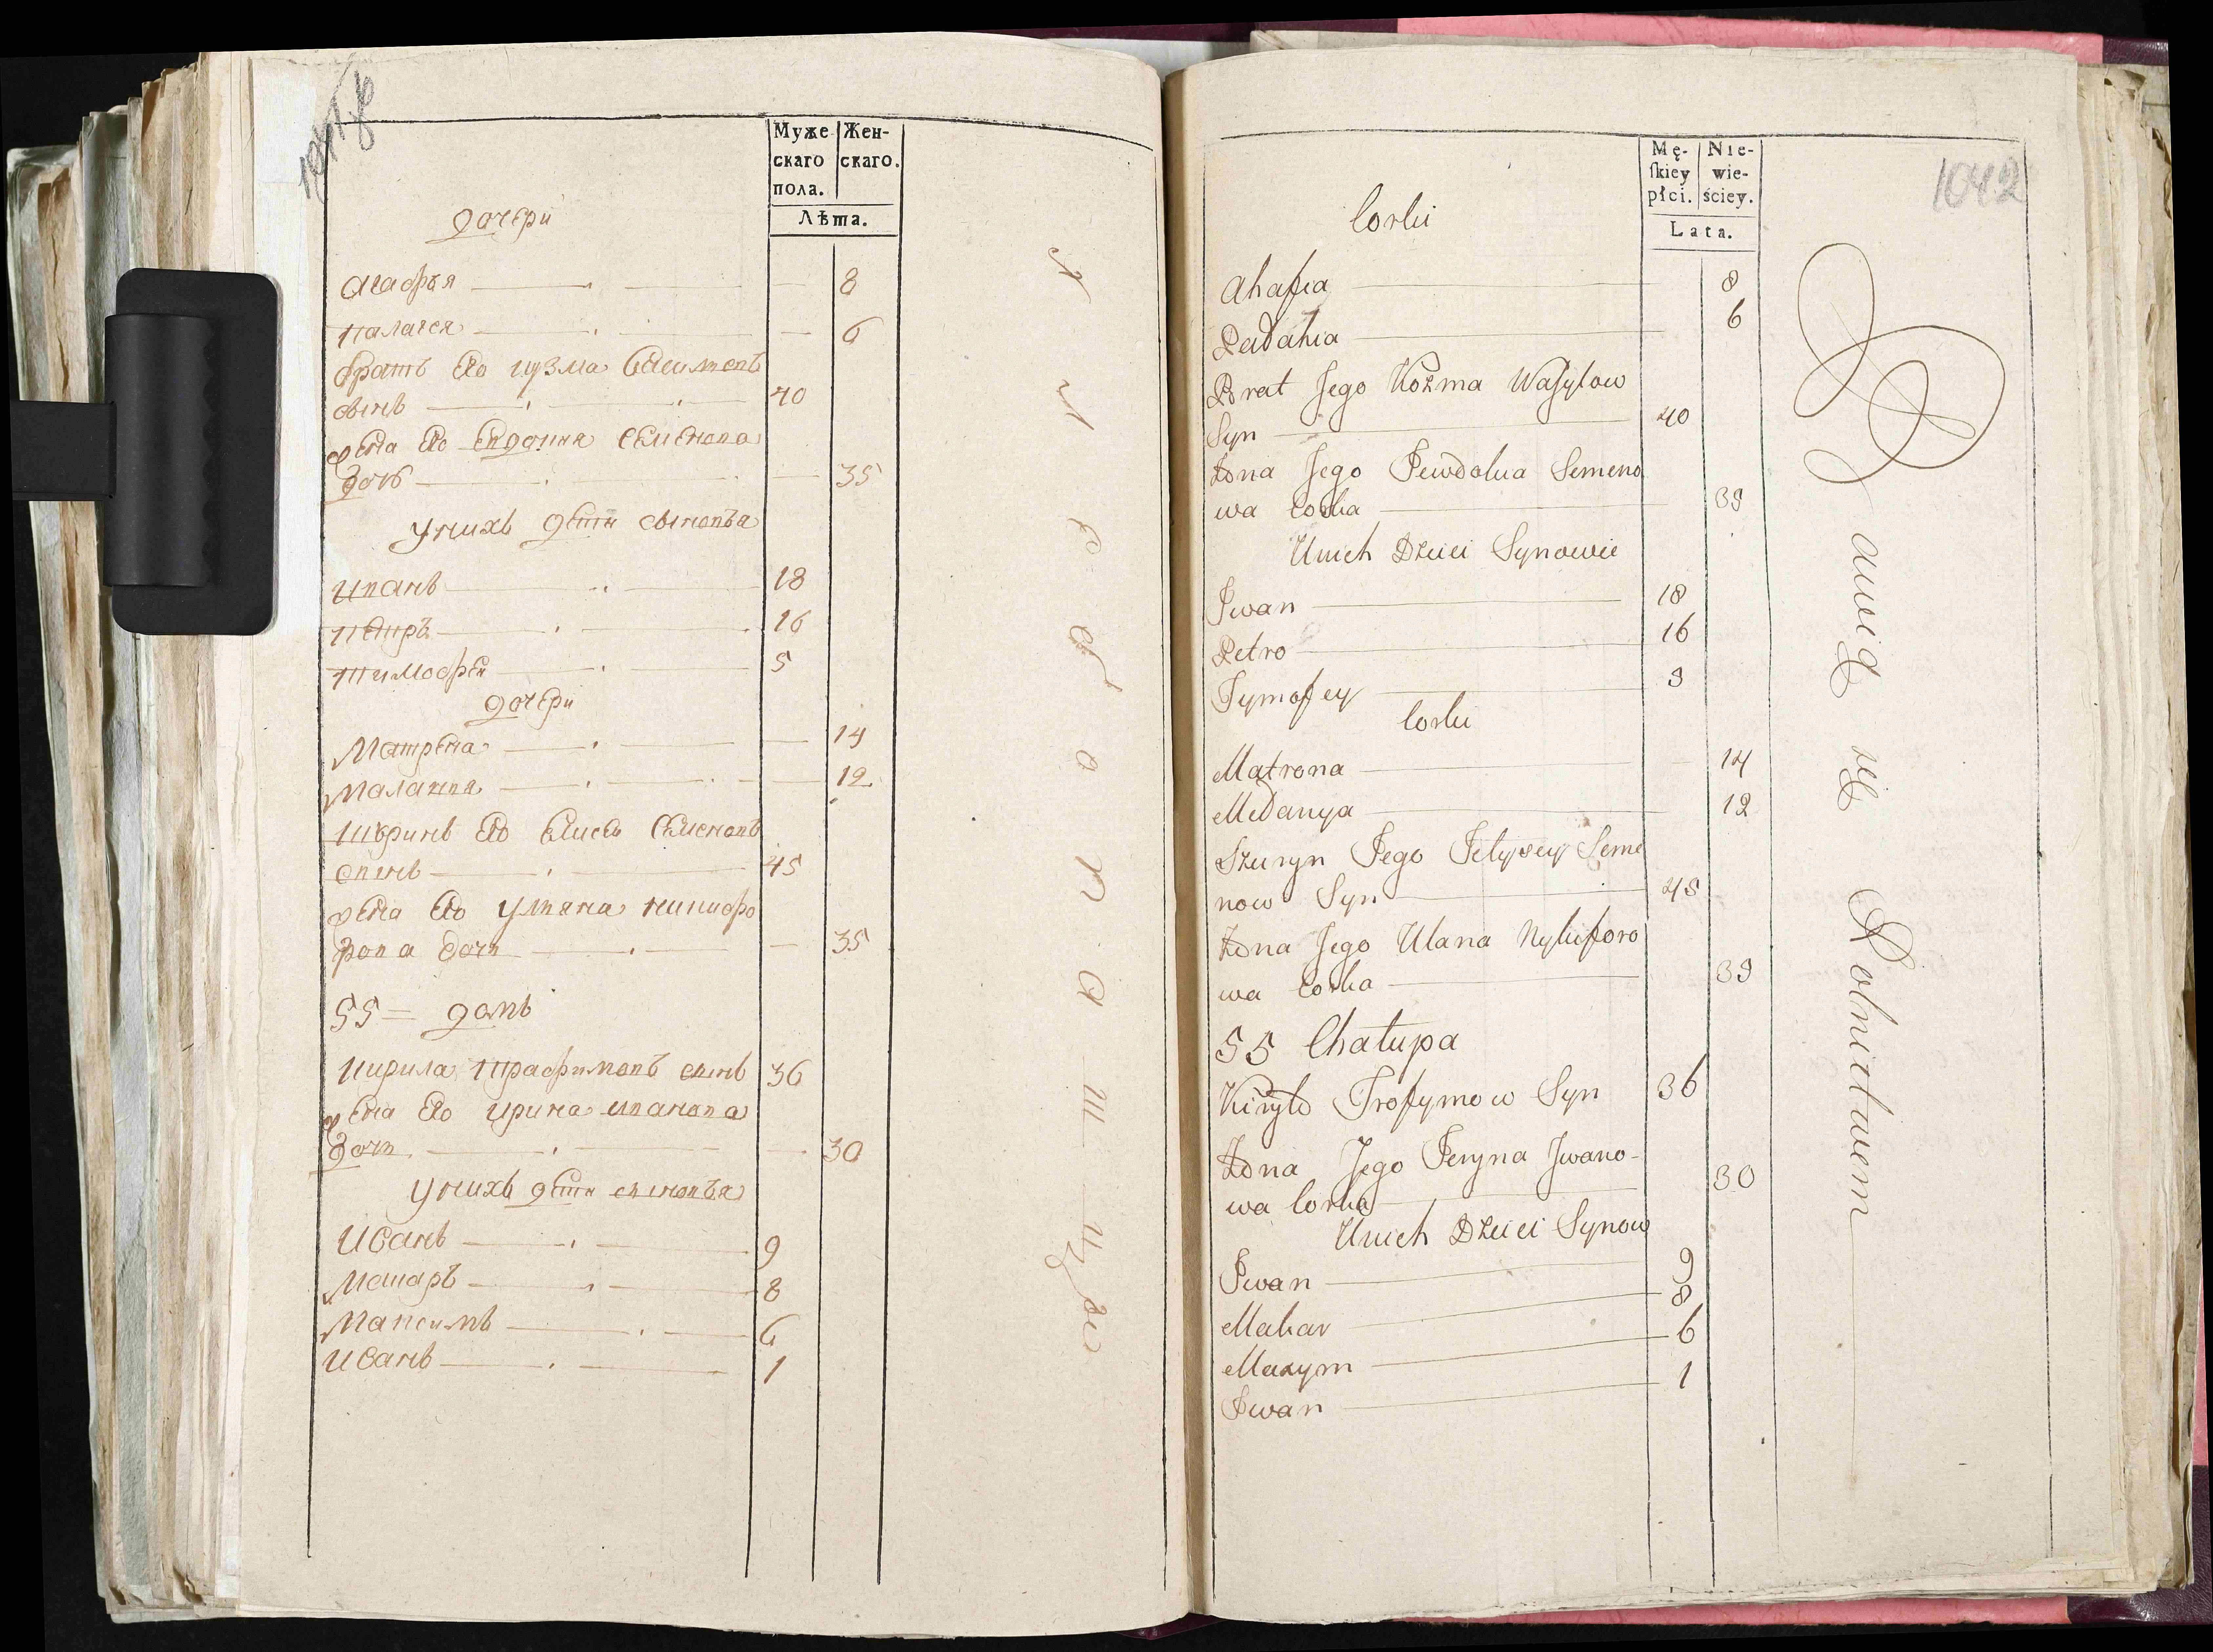 Муже-
скаго
пола.
Жен-
скаго.
Лѣта.
дочери
Агафья 8
палагея 6
братъ Его кузма Васильевъ
сынъ 40
жена Его Евдокия Семенова
дочь 35
у нихъ дети сыновья
иванъ 18
петръ 16
тимофей 5
дочери
Матрена 14
Маланья 12
шуринъ Его Елисей Семеновъ
сынъ 45
жена Его Ульяна никифо
рова дочь 35
55 = домъ
кирила трафимовъ сынъ 36
жена Его ирина иванова
дочь 30
у нихъ дети сыновья
Иванъ 9
Макаръ 8
Максимъ 6
Иванъ 1
1042
Mę-
ſkiey
płci.
Nie-
wie-
ściey.
Lata.
Corki
Ahafia 8
Pałahia 6
Brat Jego Kozma Wasylow
Syn 40
Żona Jego Jewdokia Semeno
wa Corka 35
U nich Dzieci Synowie
Jwan 18
Petro 16
Tymofey 5
Corki
Matrona 14
Mełanya 12
Szuryn Jego Jełysey Seme
now Syn 45
Żona Jego Ulana Nykiforo
wa Corka 35
55 Chałupa
Kiryło Trofymow Syn 36
Żona Jego Jeryna Jwano-
wa Corka 30
U nich Dzieci Synow
Jwan 9
Makar 8
Maxym 6
Jwan 1
Bawią się Rolnictwem